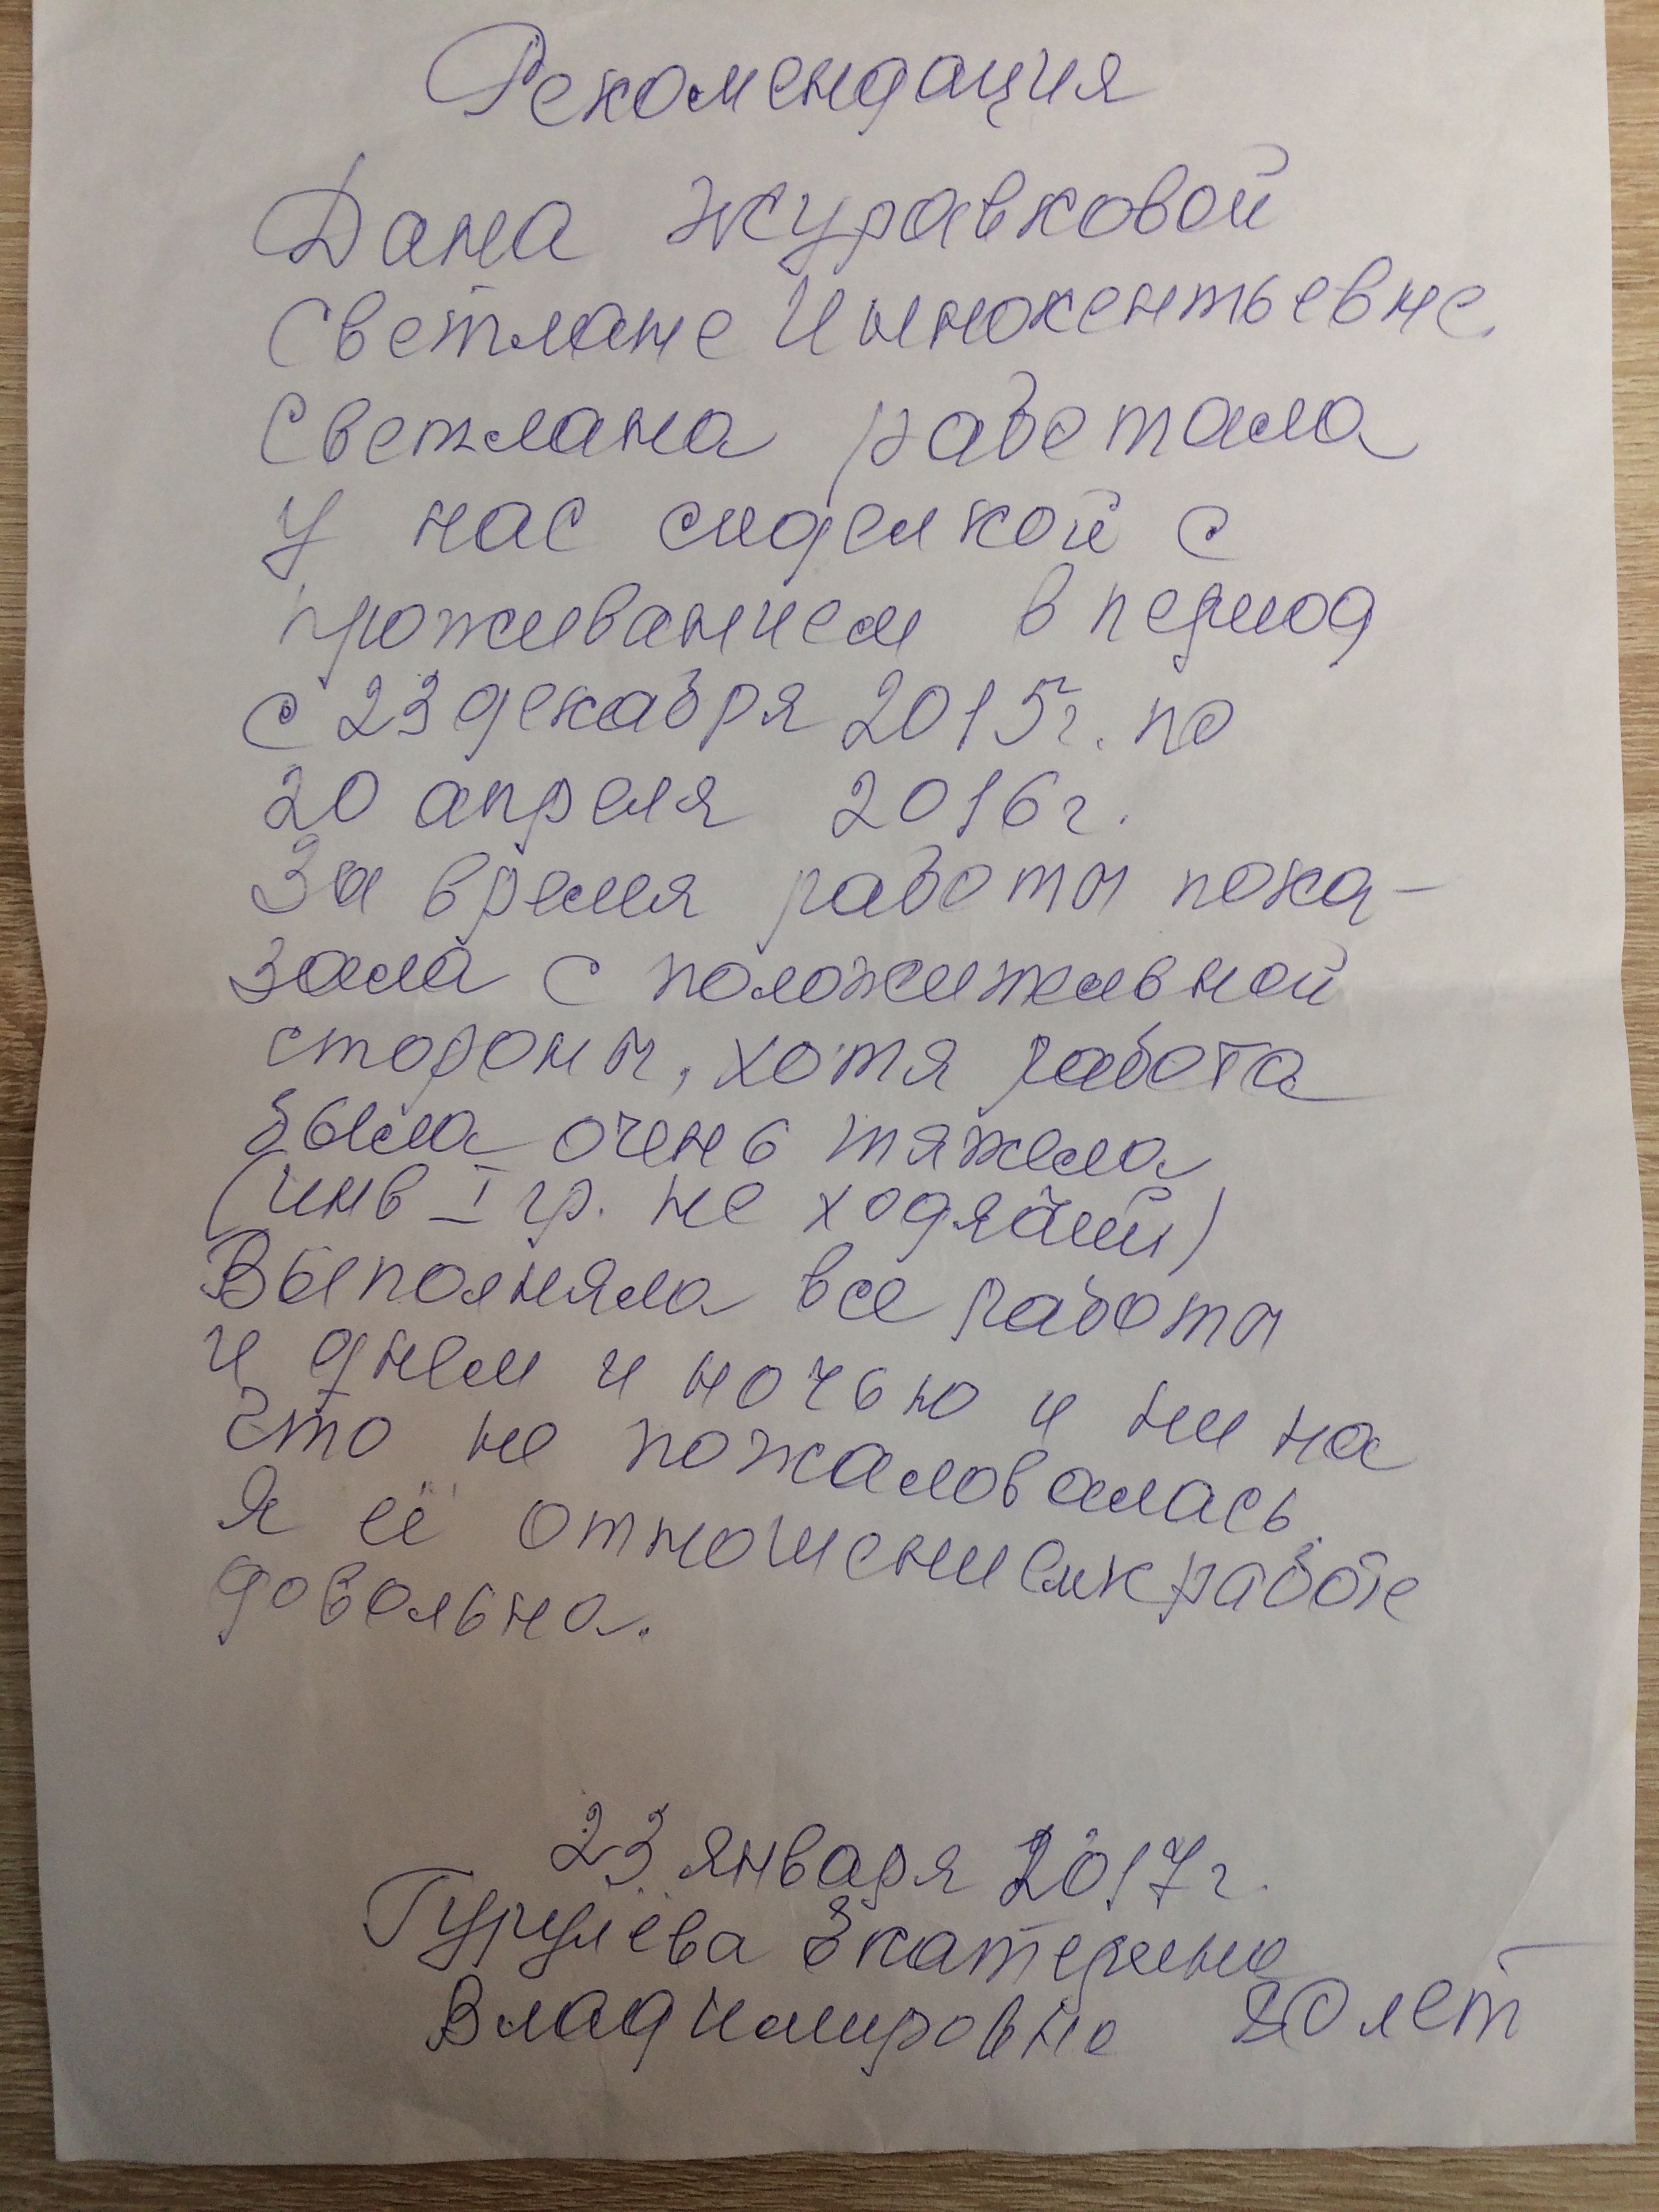 Рекомендация
Дана Журавковой
Светлане Иннокентьевне.
Светлана работала
у нас сиделкой с
проживанием в период
с 23 декабря 2015г. по
20 апреля 2016г.
За время работы пока-
зала с положительной
стороны, хотя работа
была очень тяжела
(инв I гр. не ходячий)
Выполняла все работы
и днем и ночью и ни на
что не пожаловалась.
Я её отношением к работе
довольна.
23 января 2017г.
Гурулёва Екатерина
Владимировна 80 лет